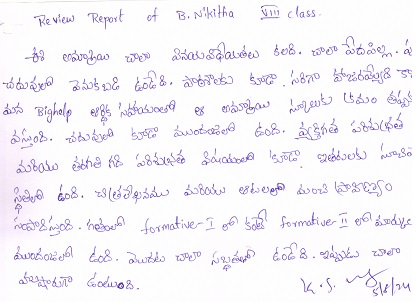 Review Report of B.Nikitha VIII class.
ఈ అమ్మాయి చాలా వినయవిధేయతలు కలది. చాలా పేదపిల్ల.
చదువులో వెనుకబడి ఉండేది. పాఠశాలకు కూడా సరిగా
మన Bighelp ఆర్థిక సహాయంతో ఆ అమ్మాయి స్కూలుకు క్రమం
వస్తుంది. చదువులో కూడా ముందంజలో ఉంది. వ్యక్తిగత పరిశుభ్రత
మరియు తరగతి గది పరిశుభ్రత విషయంలో కూడా ఇతరులకు
స్థితిలో ఉంది. చిత్రలేఖనము మరియు ఆటలలో మంచి ప్రావీణ్యం
సంపాదిస్తుంది. గతంలో formative-I లో కంటే formative-II లో
ముందంజలో ఉంది. మొదట చాలా ఉండేది. ఇప్పుడు చాలా
హుషారుగా ఉంటుంది.
K. S.
5/8/24